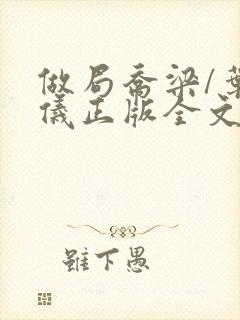 做局乔梁/葉
儀正版全文
雖下愚